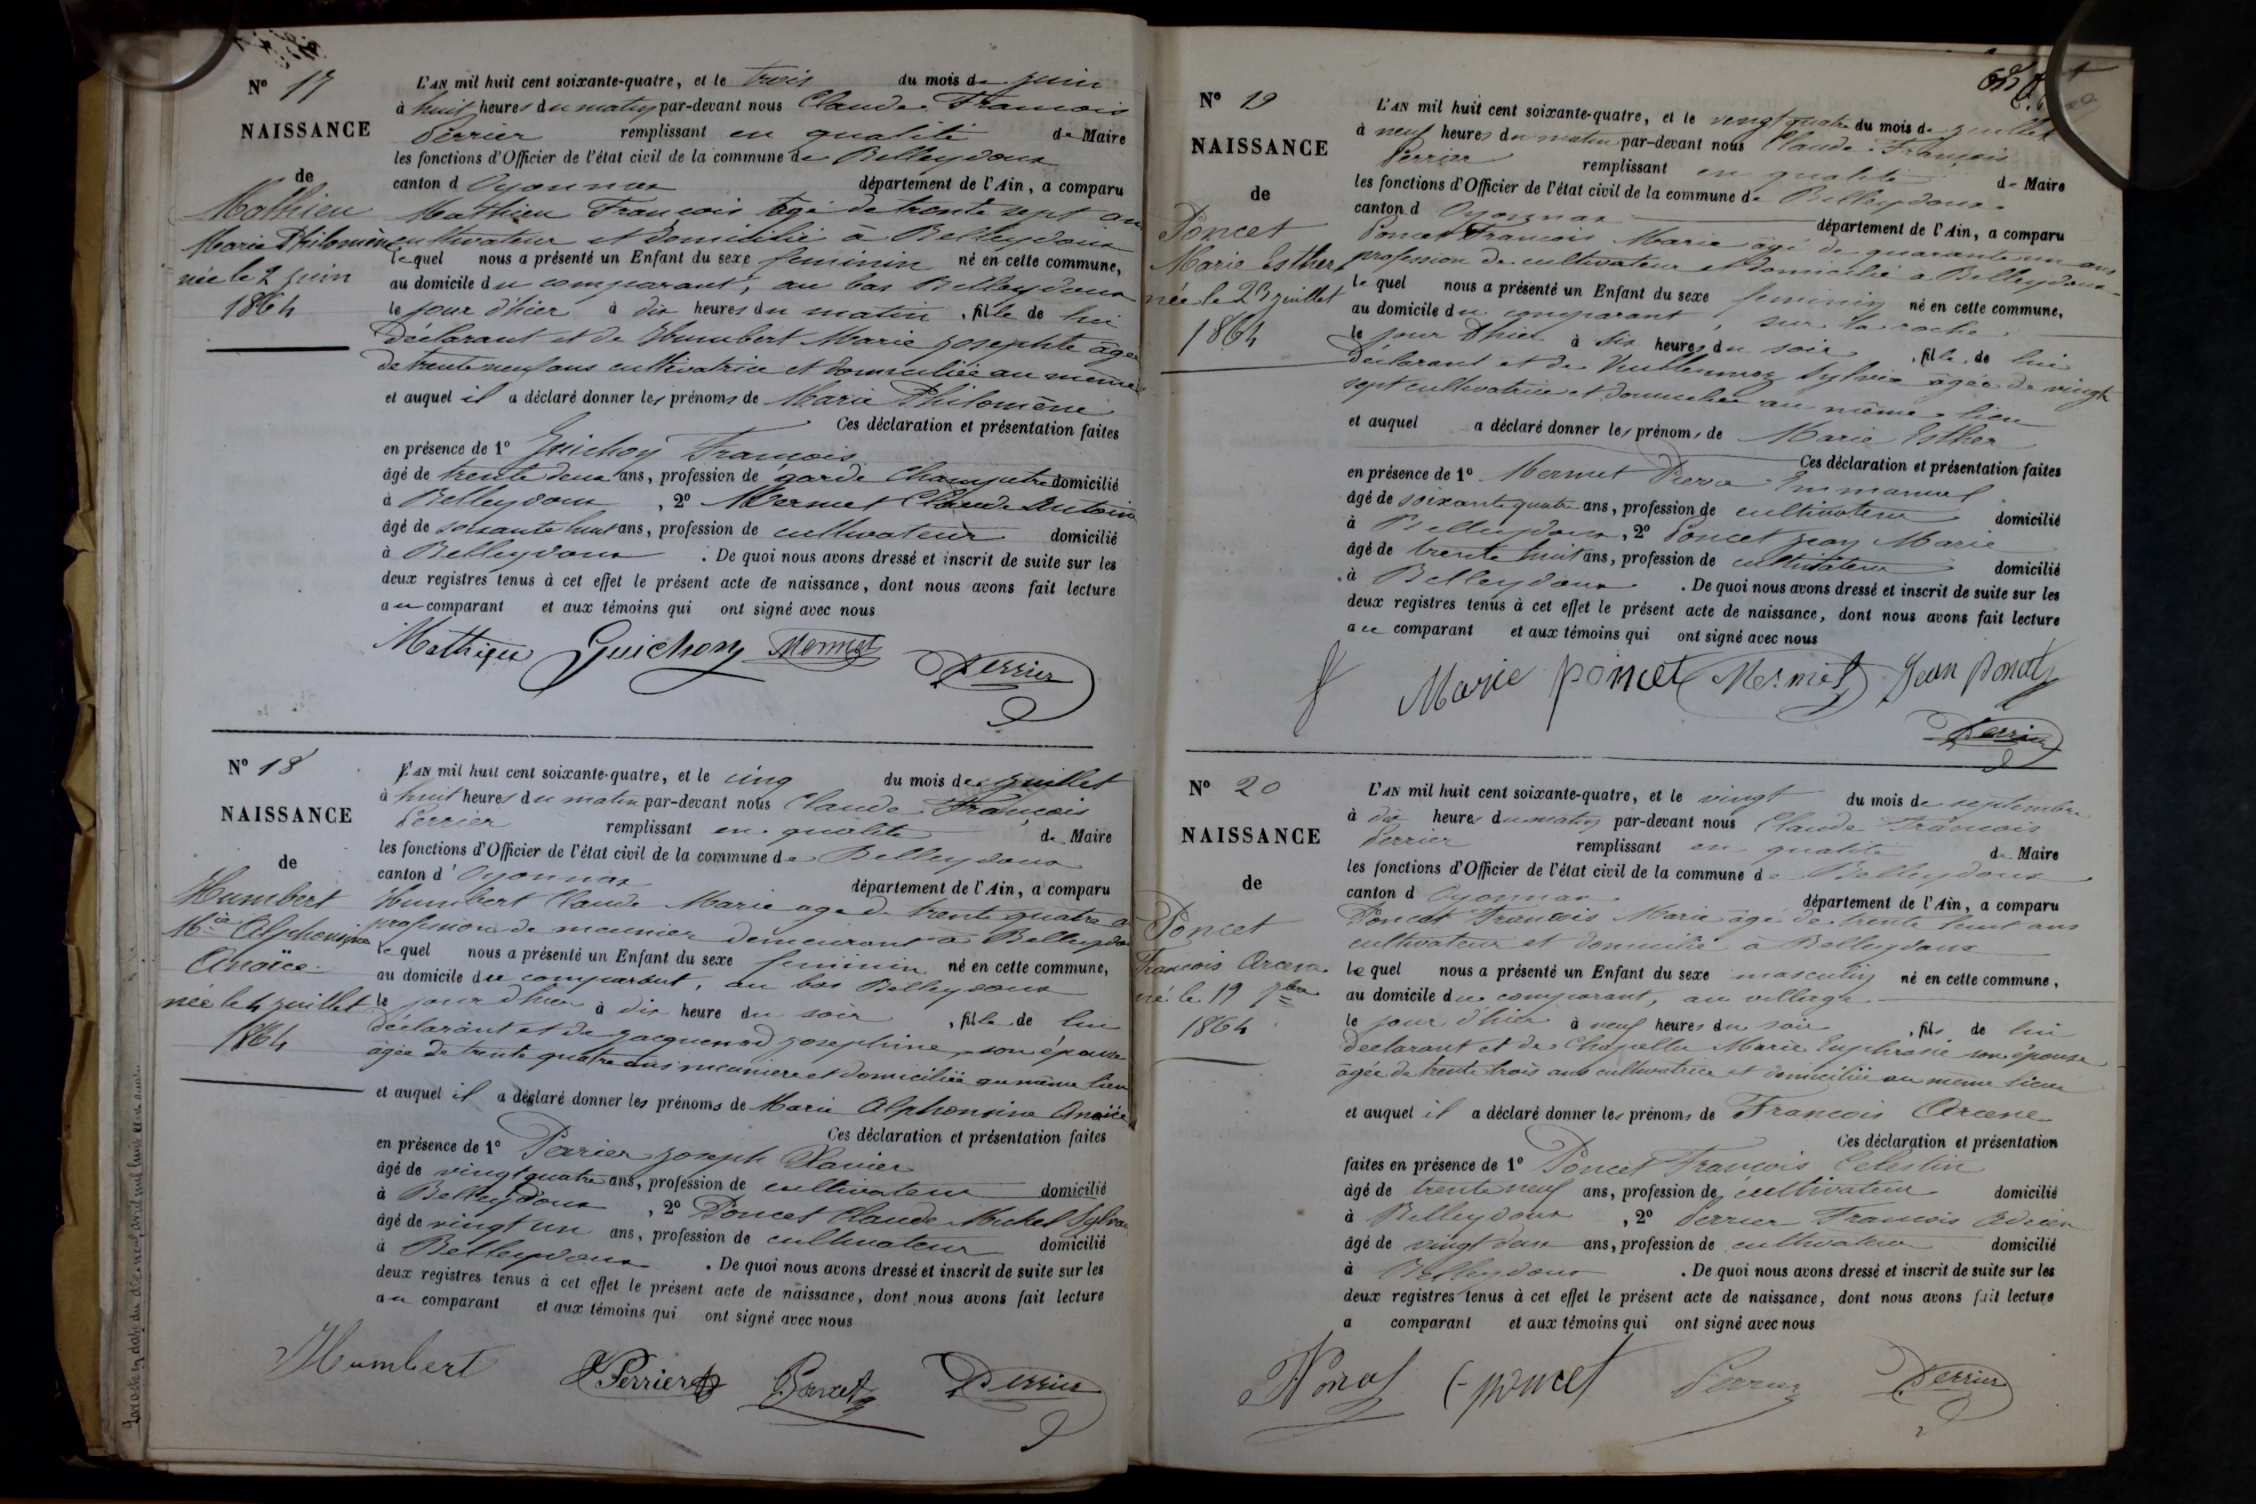 N° 17
NAISSANCE
de
Mathieu
Marie Philomène
née le 2 juin
1864
L'AN mil huit cent soixante-quatre, et le trois du mois de juin
à huit heures du matin par-devant nous Claude François
Perrier remplissant en qualité de Maire
les fonctions d'Officier de l'état civil de la commune de Belleydoux
canton d Oyonnax département de l'Ain, a comparu
Mathieu François âgé de trente sept ans
cultivateur et domicilié à Belleydoux
lequel nous a présenté un Enfant du sexe feminin né en cette commune,
au domicile du comparant, au bas Belleydoux
le jour d'hier à dix heures du matin, fille de lui
déclarant et de Humbert Marie josephte âgée
de trente neuf ans cultivatrice et domiciliée au même
et auquel il a déclaré donner les prénoms de Marie Philomène
Ces déclaration et présentation faites
en présence de 1° Guichon François
âgé de trente deux ans, profession de garde champetre domicilié
à Belleydoux, 2° Mermet Claude Antoine
âgé de soixante huit ans, profession de cultivateur domicilié
à Belleydoux. De quoi nous avons dressé et inscrit de suite sur les
deux registres tenus à cet effet le présent acte de naissance, dont nous avons fait lecture
au comparant et aux témoins qui ont signé avec nous
Mathieu Guichon Mermet Perrier
N° 18
NAISSANCE
de
Humbert
Mie Alphonsine
Anaïce
née le 4 juillet
1864
L'AN mil huit cent soixante-quatre, et le cinq du mois de juillet
à huit heures du matin par-devant nous Claude François
Perrier remplissant en qualité de Maire
les fonctions d'Officier de l'état civil de la commune de Belleydoux
canton d'Oyonnax département de l'Ain, a comparu
Humbert Claude Marie age de trente quatre a
profession de meunier demeurant à Belleydou
lequel nous a présenté un Enfant du sexe feminin né en cette commune,
au domicile du comparant, au bas Belleydoux
le jour d'hier à dix heure du soir, fille de lui
déclarant et de jacquenod josephine son épouse
âgée de trente quatre ans meuniere et domiciliée au même lieu
et auquel il a déclaré donner les prénoms de Marie Alphonsine Anaïce
Ces déclaration et présentation faites
en présence de 1° Perrier joseph Xavier
âgé de vingt quatre ans, profession de cultivateur domicilié
à Belleydoux, 2° Poncet Claude Michel Sylva
âgé de vingt un ans, profession de cultivateur domicilié
à Belleydoux. De quoi nous avons dressé et inscrit de suite sur les
deux registres tenus à cet effet le présent acte de naissance, dont nous avons fait lecture
au comparant et aux témoins qui ont signé avec nous
Humbert Perrier Poncet Perrier
N° 19
NAISSANCE
de
Poncet
Marie Esther
née le 23 juillet
1864
L'AN mil huit cent soixante-quatre, et le vingt quatre du mois de juillet
à neuf heures du matin par-devant nous Claude François
Perrier remplissant en qualité de Maire
les fonctions d'Officier de l'état civil de la commune de Belleydoux
canton d Oyonnax département de l'Ain, a comparu
Poncet François Marie âgé de quarante un ans
profession de cultivateur et domicilié à Belleydoux
lequel nous a présenté un Enfant du sexe feminin né en cette commune,
au domicile du comparant, sur la roche
le jour d'hier à six heures du soir, fille de lui
déclarant et de Vuillermoz Sylvie âgée de vingt
sept cultivatrice et domiciliée au même lieu
et auquel a déclaré donner les prénoms de Marie Esther
Ces déclaration et présentation faites
en présence de 1° Mermet Pierre Emmanuel
âgé de soixante quatre ans, profession de cultivateur domicilié
à Belleydoux, 2° Poncet jean Marie
âgé de trente huit ans, profession de cultivateur domicilié
à Belleydoux. De quoi nous avons dressé et inscrit de suite sur les
deux registres tenus à cet effet le présent acte de naissance, dont nous avons fait lecture
au comparant et aux témoins qui ont signé avec nous
Marie poncet Mermet Jean poncet
Perrier
N° 20
NAISSANCE
de
Poncet
François Arcene
né le 19 7bre
1864
L'AN mil huit cent soixante-quatre, et le vingt du mois de septembre
à dix heures du matin par-devant nous Claude François
Perrier remplissant en qualité de Maire
les fonctions d'Officier de l'état civil de la commune de Belleydoux
canton d Oyonnax département de l'Ain, a comparu
Poncet François Marie âgé de trente huit ans
cultivateur et domicilié à Belleydoux
lequel nous a présenté un Enfant du sexe masculin né en cette commune,
au domicile du comparant, au village
le jour d'hier à neuf heures du soir, fils de lui
déclarant et de Chapelle Marie Euphrasie son épouse
âgée de trente trois ans cultivatrice et domiciliée au même lieu
et auquel il a déclaré donner les prénoms de François Arcene
Ces déclaration et présentation
faites en présence de 1° Poncet François Celestin
âgé de trente neuf ans, profession de cultivateur domicilié
à Belleydoux, 2° Perrier François
âgé de vingt deux ans, profession de cultivateur domicilié
à Belleydoux. De quoi nous avons dressé et inscrit de suite sur les
deux registres tenus à cet effet le présent acte de naissance, dont nous avons fait lecture
a comparant et aux témoins qui ont signé avec nous
poncet Perrier Perrier